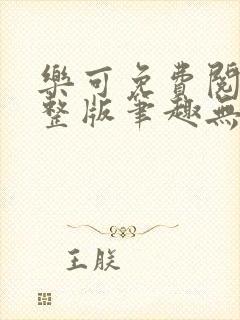 樂可免費閱
整版筆趣無
王朕